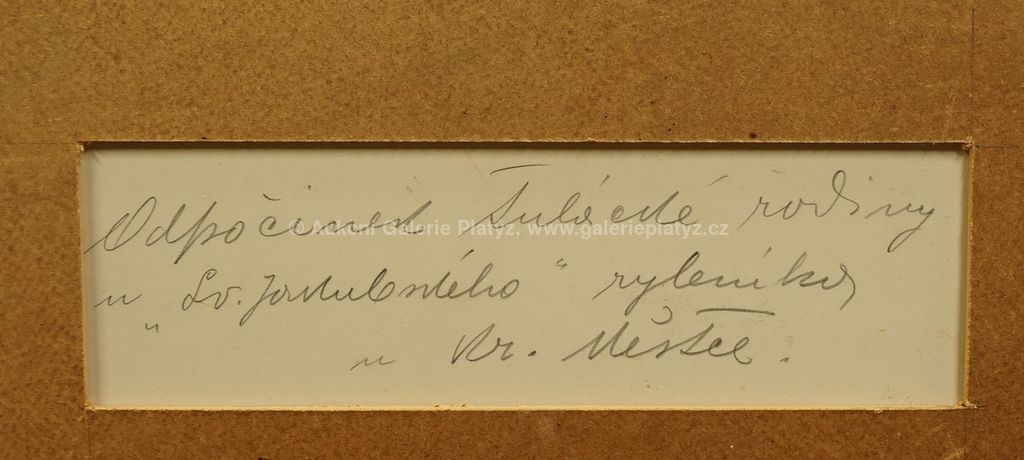 Odpočinek Tulácké rodiny
u „Sv. Jakubského“ rybníka,
u Kr. Městce.
© Aukční Galerie Platýz, www.galerieplatyz.cz